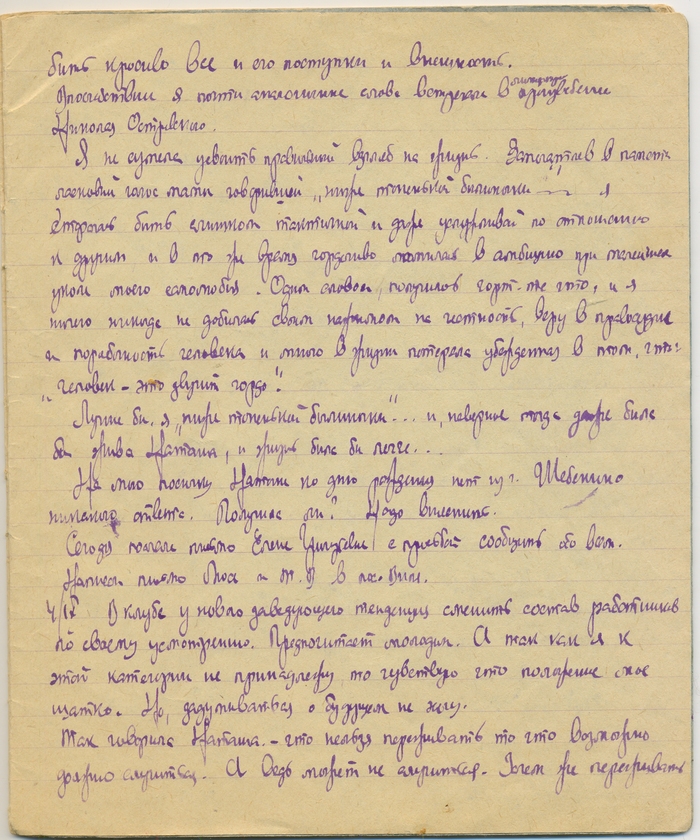 быть красиво все и его поступки и внешность.
Впоследствии я почти аналогичные слова встречала в
Николая Островского.
Я не сумела усвоить правильный взгляд на жизнь. Запечатлев в памяти
ласковый голос мамы говорившей „ниже тоненькой былиночки — я
старалась быть слишком тактичной и даже услужливой по отношению
к другим и в то же время горделиво в амбицию при малейшем
уколе моего самолюбия. Одним словом, получилось черт-те что, и я
ничего никогда не добилась своим на честность, веру в правосудие
и порядочность человека и много в жизни потеряла убежденная в том, что:
„человек – это звучит гордо".
Лучше бы я „ниже тоненькой былиночки"... и, наверное тогда даже была
бы жива Наташа, и жизнь была бы легче...
На мою посылку Наташе ко дню рождения нет из г. Шебекино
никакого ответа. Получила ли? Надо выяснить.
Сегодня послала письмо Елене с просьбой сообщить обо всем.
Написала письмо Люсе и т. в пос.
4/IX В клубе у нового заведующего тенденция сменить состав работников
по своему усмотрению. Предпочитает молодых. А так как я к
этой категории не принадлежу, то чувствую что положение мое
шатко. Но, задумываться о будущем не хочу.
Так говорила Наташа. – что нельзя переживать то что возможно
должно случиться. А ведь может не случиться. Зачем же переживать